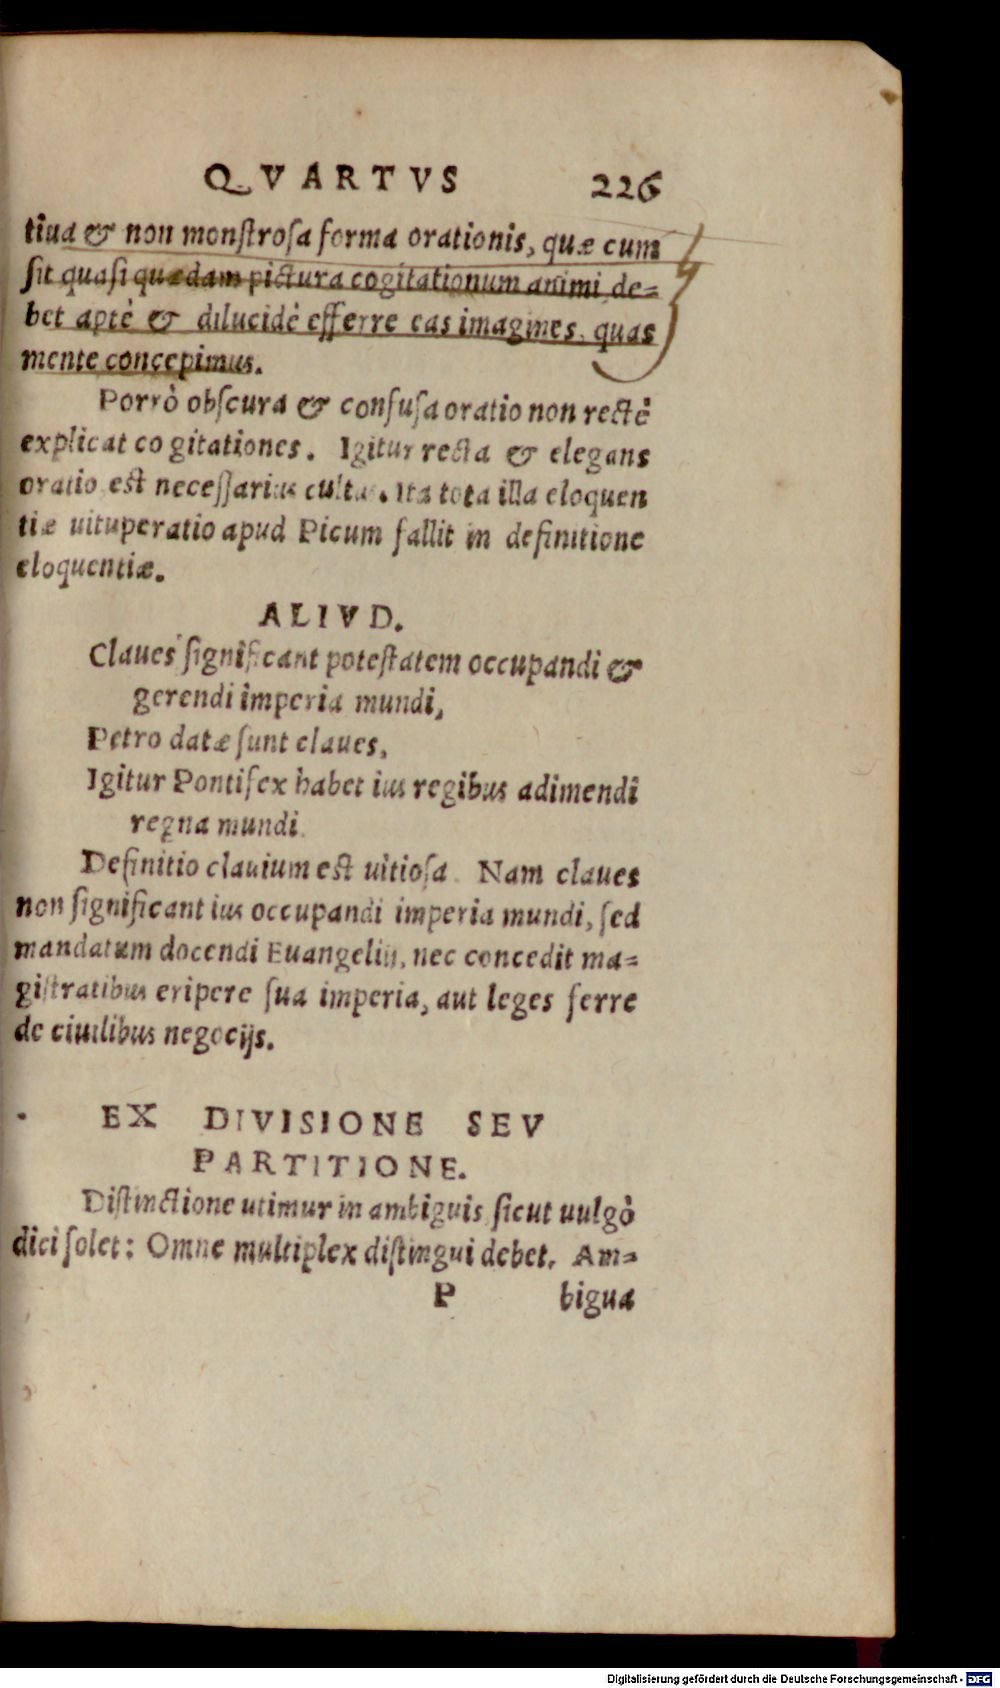 QVARTVS 226
tiua & non monſtroſa forma orationis, quæ cum
ſit quaſi quædam pictura cogitationum animi de=
bet aptè & dilucidè efferre eas imagines, quas
mente concepimus.
Porrò obſcura & confuſa oratio non rectè
explicat cogitationes. Igitur recta & elegans
oratio est neceſſarius cultus. Ita tota illa eloquen
tiæ uituperatio apud Picum fallit in definitione
eloquentiæ.
ALIVD.
Claues ſignificant poteſtatem occupandi &
gerendi imperia mundi,
Petro datæ ſunt claues,
Igitur Pontifex habet ius regibus adimendi
regna mundi.
Definitio clauium est uitioſa. Nam claues
non ſignificant ius occupandi imperia mundi, ſed
mandatum docendi Euangeliū, nec concedit ma=
giſtratibus eripere ſua imperia, aut leges ferre
de ciuilibus negocijs.
EX DIVISIONE SEV
PARTITIONE.
Diſtinctione utimur in ambiguis ſicut uulgò
dici ſolet: Omne multiplex diſtingui debet. Am=
P bigua
Digitalisierung gefördert durch die Deutsche Forschungsgemeinschaft - DFG